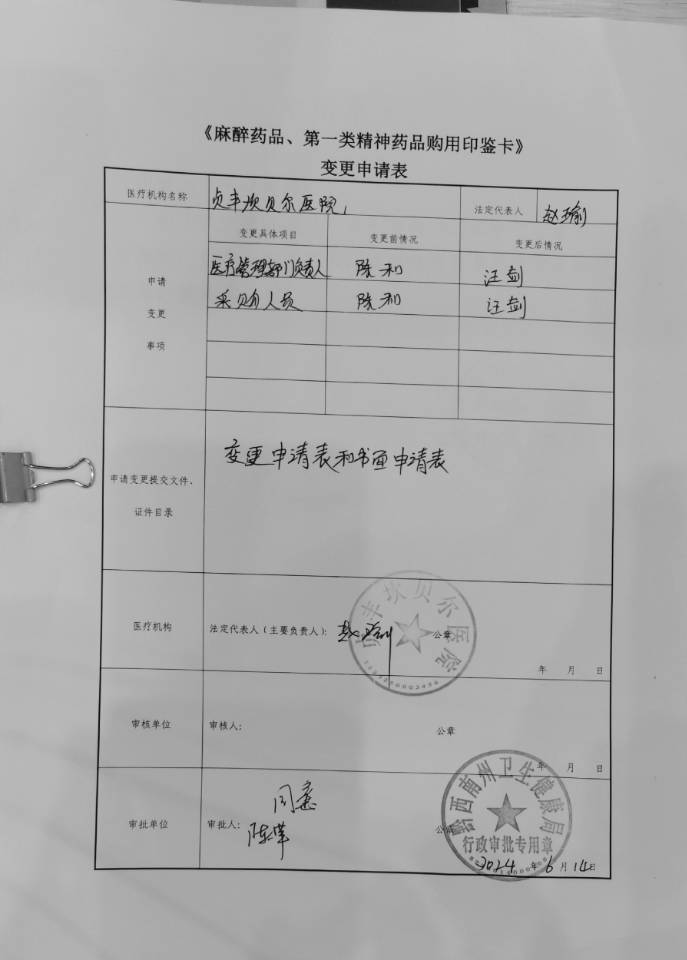 《麻醉药品、第一类精神药品购用印鉴卡》
变更申请表
医疗机构名称 贞丰坎贝尔医院 法定代表人 赵瑜
申请变更事项 变更具体项目 变更前情况 变更后情况
医疗管理部门负责人 陈和 汪剑
采购人员 陈和 汪剑
申请变更提交文件、证件目录 变更申请表和书面申请表
医疗机构 法定代表人（主要负责人）： 公章
贞丰坎贝尔医院
年 月 日
审核单位 审核人： 公章
年 月 日
审批单位 审批人： 公章
黔西南州卫生健康局
行政审批专用章
2024 年 6 月 14 日